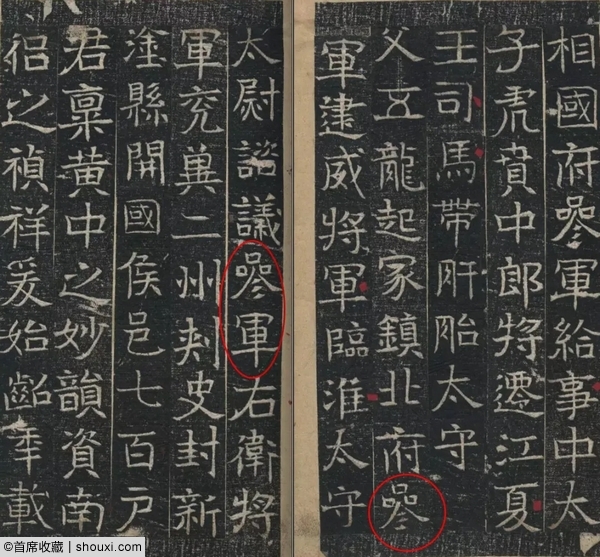 相國府參軍給事中太
子虎賁中郎將遷江夏
王司馬帶盱眙太守
父五龍起家鎮北府參
軍建威將軍臨淮太守
太尉諮議參軍右衛將
軍兗冀二州刺史封新
塗縣開國侯邑七百戶
君稟黃中之妙韻資南
侶之禎祥爰始齠年載
©首席收藏 | shouxi.com